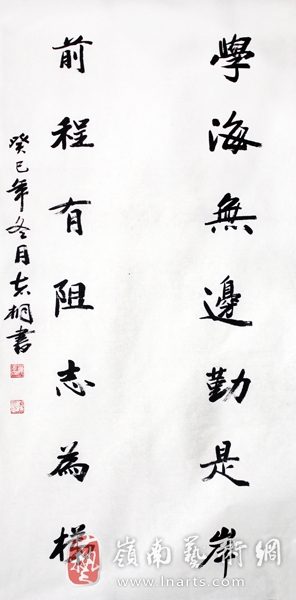 學海無邊勤是岸
前程有阻志為梯
癸巳年冬月志桐書
嶺南藝術網
www.lnarts.com